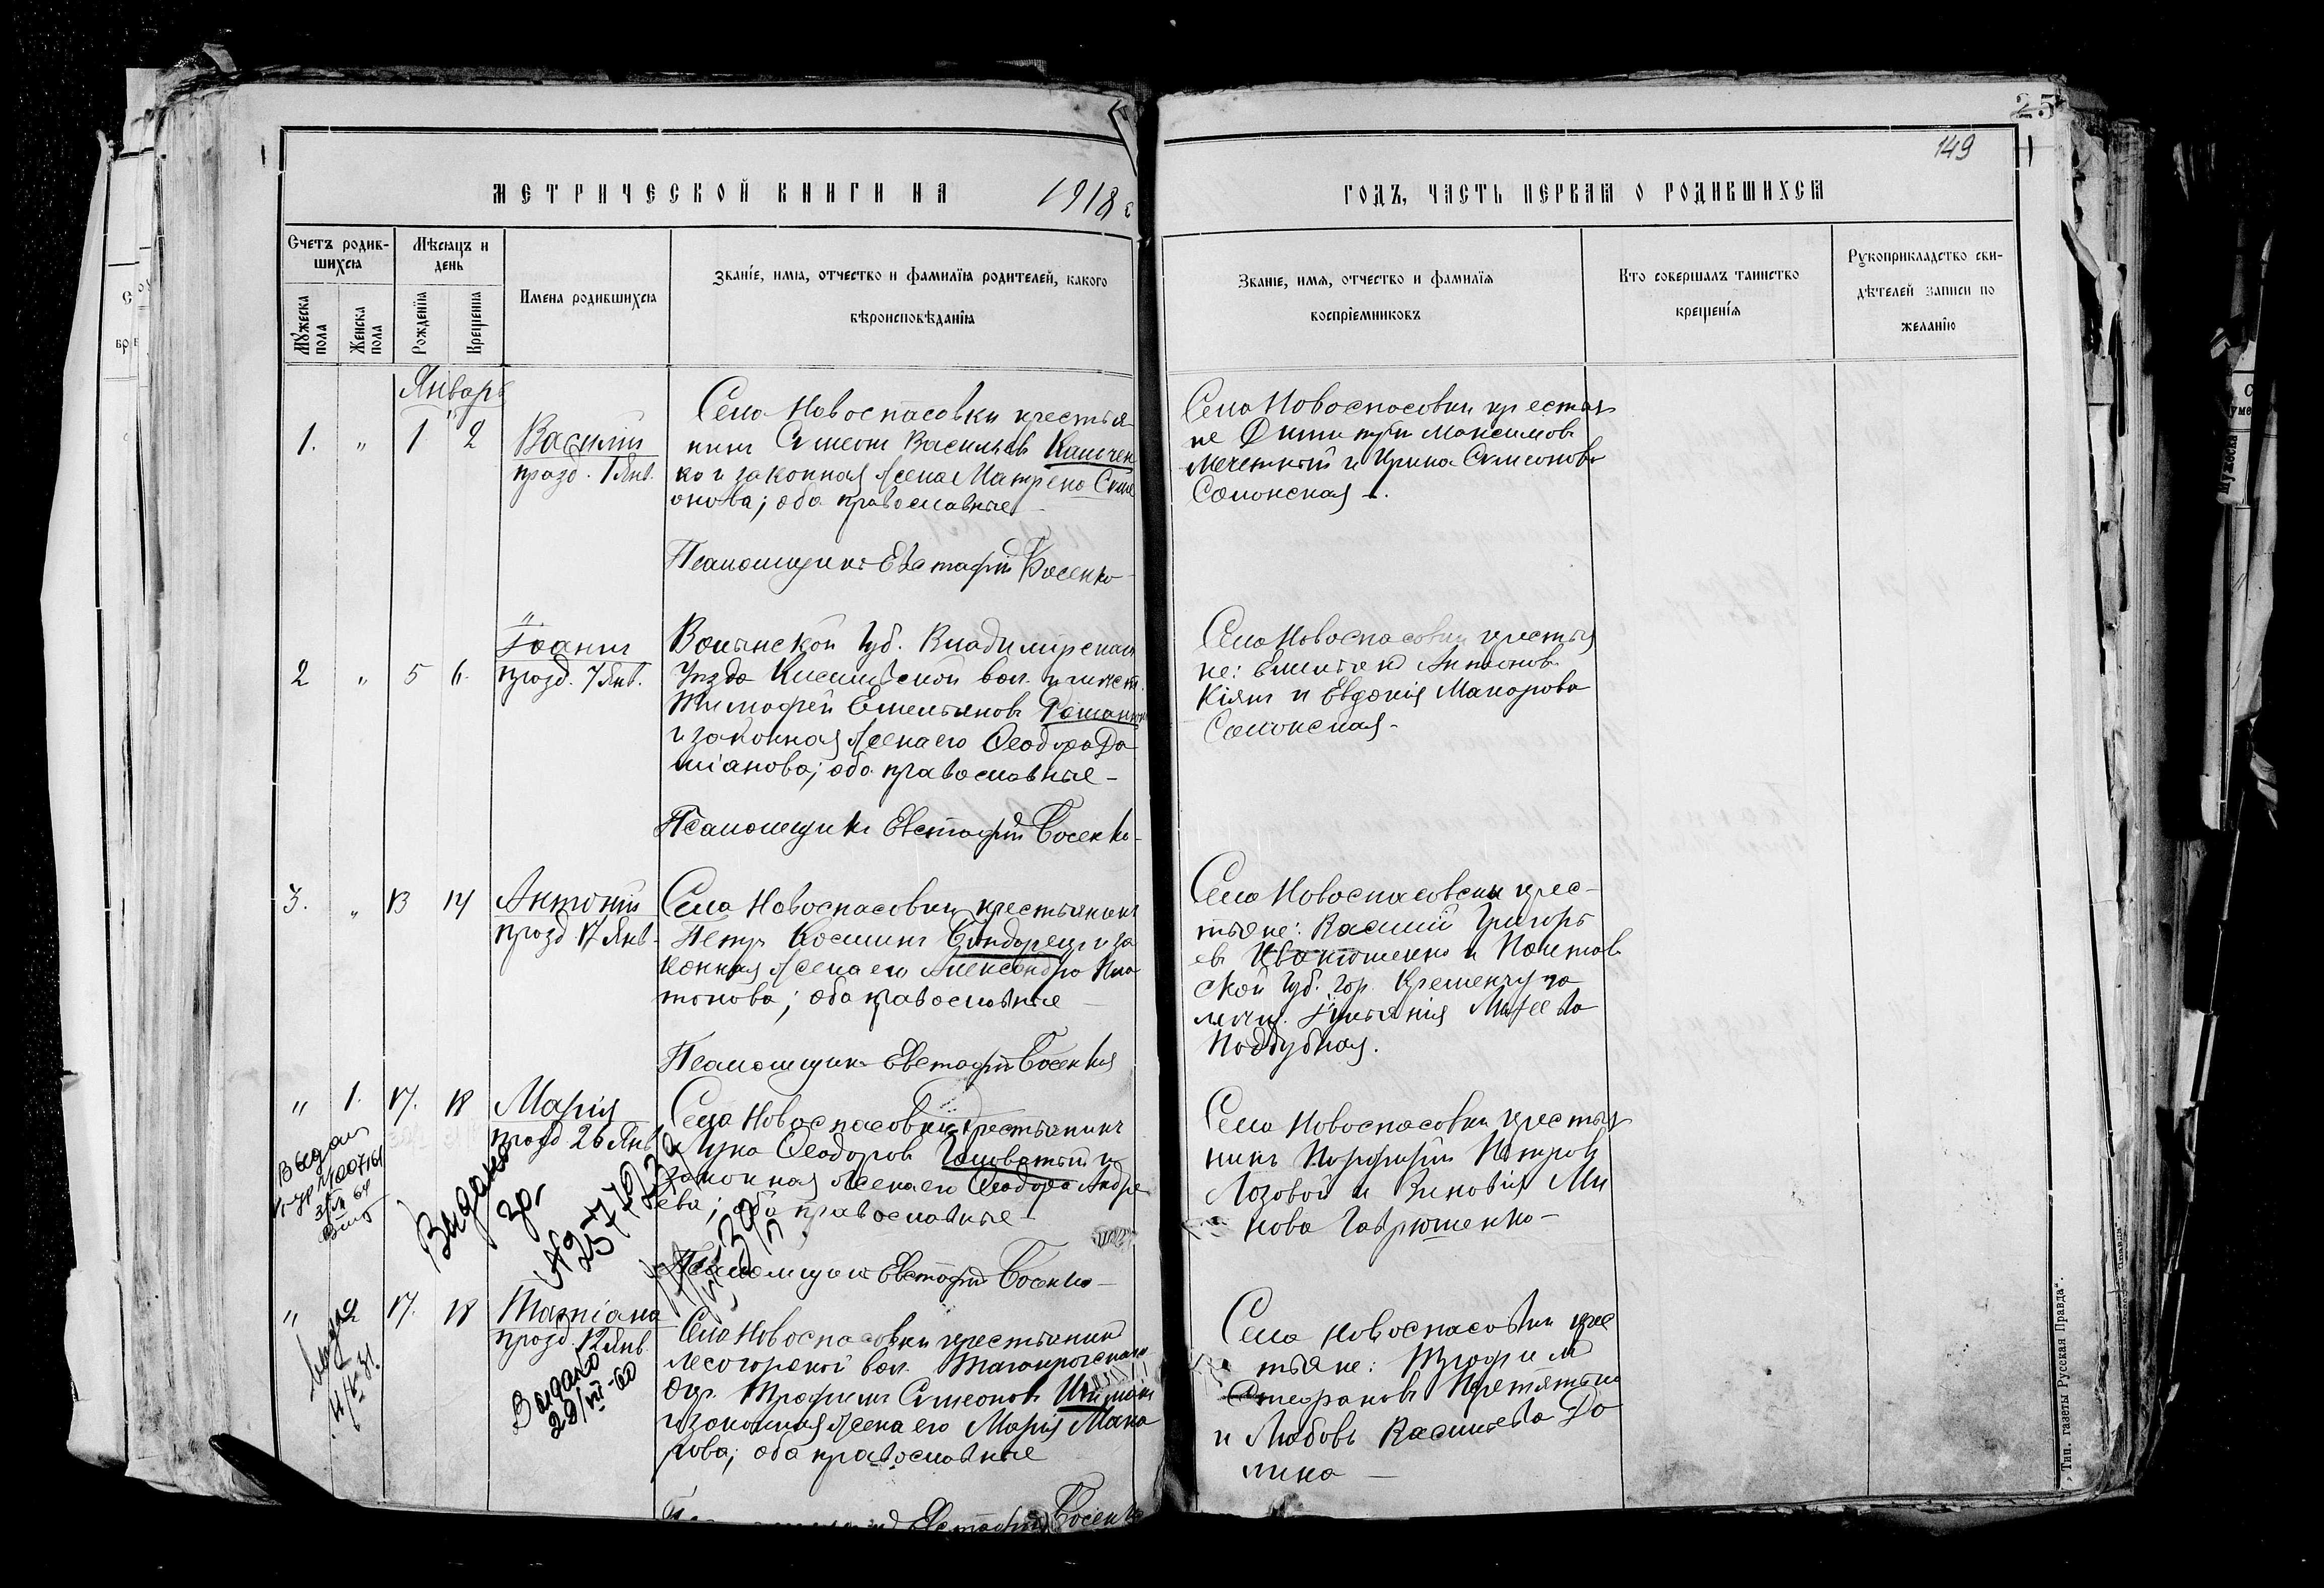 25
149
МЕТРИЧЕСКОЙ КНИГИ НА 1918 г
ГОДЪ, ЧАСТЬ ПЕРВАЯ О РОДИВШИХСЯ
Счетъ родив-
шихся
Мужеска пола
Женска пола
Мѣсяцъ и
день
Рожденія
Крещенія
Имена родившихся
Званіе, имя, отчество и фамилія родителей, какого
вѣроисповѣданія
Званіе, имя, отчество и фамилія
воспріемниковъ
Кто совершалъ таинство
крещенія
Рукоприкладство сви-
дѣтелей записи по
желанію
Январь
1. " 1 2
Василій
празд. 1 Янв.
Села Новоспасовки крестья-
нинъ Симеонъ Васильевъ Калчен
ко и законная жена Матрена Симе
онова; оба православные
Псаломщикъ Евстафій Босенко
Села Новоспасовки крестья
не Димитрій Максимовъ
Мечетный и Ирина Симеонова
Солонская
2 " 5 6.
Іоаннъ
празд. 7 Янв.
Волынской Губ. Владимірскаго
уѣзда вол.
Тимофей Емельяновъ Романюк
и законная жена его Ѳеодора Да
міанова; оба православные
Псаломщикъ Евстафій Босенко
Села Новоспасовки крестья
не: Емельянъ Антоновъ
Кіянъ и Евдокія Макарова
Солонская
3. " 13 14
Антоній
празд. 17 Янв.
Села Новоспасовки крестьянинъ
Петръ Косминъ и за
конная жена его Александра Пла
тонова; оба православные
Псаломщикъ Евстафій Босенко
Села Новоспасовски крес-
тьяне: Василій Григорь
евъ Ивантошенко и Полтав
ской Губ. гор. Кременчуга
мѣщ. Іуліанія Матѳеева
Поддубная.
" 1. 17. 18
Марія
празд 26 Янв.
Села Новоспасовки крестьянинъ
Лука Ѳеодоровъ Головатый и
законная жена его Ѳеодора Андре
ева; оба православные
Псаломщикъ Евстафій Босенко
Села Новоспасовки крестья
нинъ Порфирій Петровъ
Лозовой и Зиновія Ми
нова Гаврюшенко
Выдано
" 2 17. 18
Татіана
празд. 12 Янв.
Выдано
28/VII-60
Села Новоспасовки крестьянинъ
Лесогорской вол. Таганрогскаго
Окр. Трофимъ Симеоновъ
и законная жена его Марія Мака
рова; оба православные
Евстафій Босенко
Села Новоспасовки крес
тьяне: Трофим
Стефановъ
и Любовь Васильева До
лина
Тип. газеты „Русская Правда“.